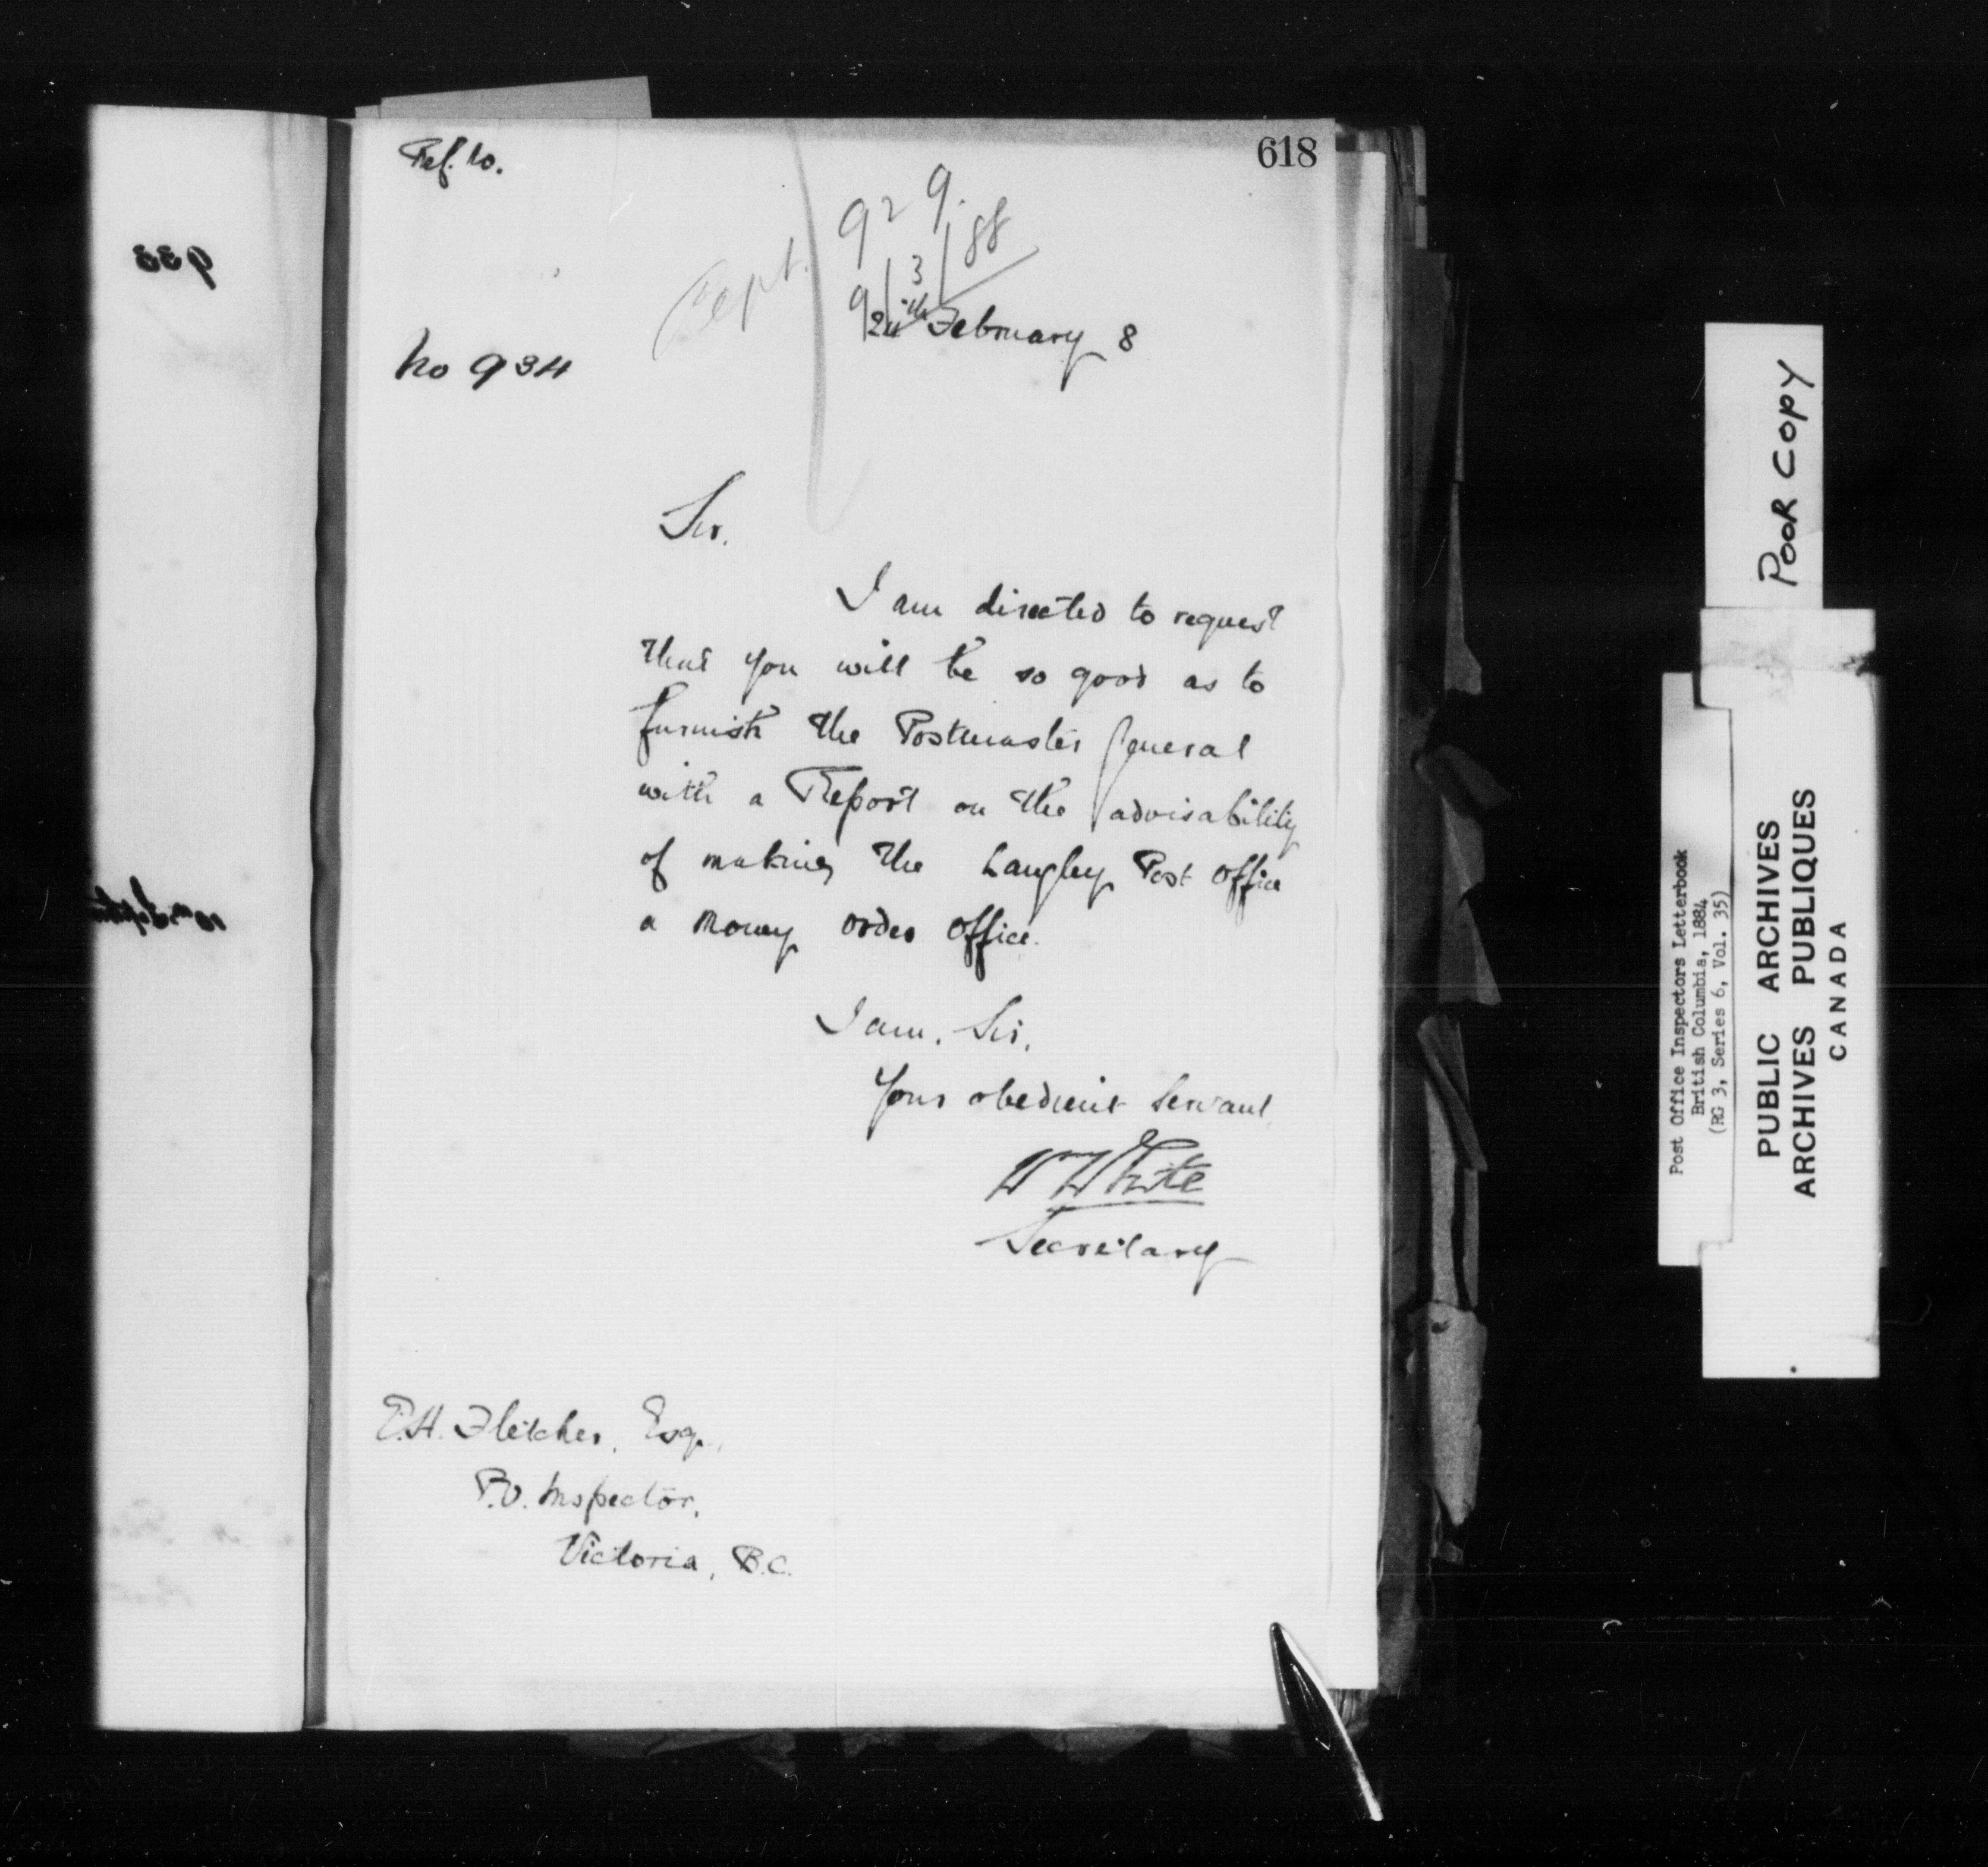 618
Ref. No.
929.
Rept. 9/3/88
24th February 8
No 934
Sir.
I am directed to request
that you will be so good as to
furnish the Postmaster General
with a Report on the advisability
of making the Langley Post Office
a Money Order Office.
I am, Sir,
Your obedient Servant,
W White
Secretary
E.H. Fletcher, Esq.,
P.O. Inspector,
Victoria, B.C.
933
POOR COPY
Post Office Inspectors Letterbook
British Columbia, 1884
(RG 3, Series 6, Vol. 35)
PUBLIC ARCHIVES
ARCHIVES PUBLIQUES
CANADA